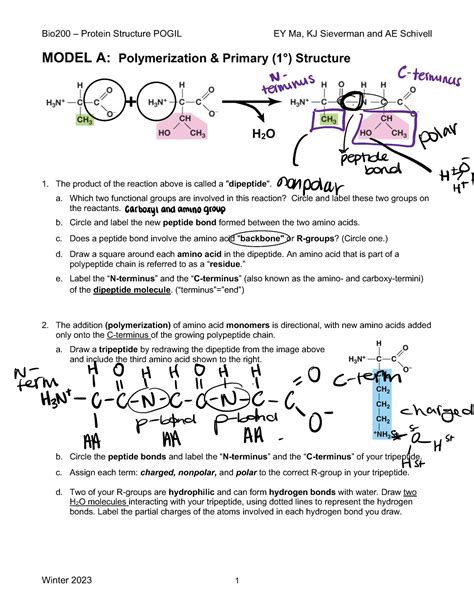 Bio200 – Protein Structure POGIL EY Ma, KJ Sieverman and AE Schivell
MODEL A: Polymerization & Primary (1°) Structure
N-terminus
C-terminus
H H H O H H
H₃N⁺ C C O O⁻ + H₃N⁺ C C O O⁻ H₃N⁺ C C N C C O O⁻
CH₃ CH CH₃ CH
HO CH₃ H₂O HO CH₃
polar
peptide bond
nonpolar
1. The product of the reaction above is called a "dipeptide".
a. Which two functional groups are involved in this reaction? Circle and label these two groups on
the reactants. Carboxyl and amino group
b. Circle and label the new peptide bond formed between the two amino acids.
c. Does a peptide bond involve the amino acid "backbone" or R-groups? (Circle one.)
d. Draw a square around each amino acid in the dipeptide. An amino acid that is part of a
polypeptide chain is referred to as a "residue."
e. Label the "N-terminus" and the "C-terminus" (also known as the amino- and carboxy-termini)
of the dipeptide molecule. ("terminus"="end")
2. The addition (polymerization) of amino acid monomers is directional, with new amino acids added
only onto the C-terminus of the growing polypeptide chain.
a. Draw a tripeptide by redrawing the dipeptide from the image above
and include the third amino acid shown to the right.
H
H₃N⁺ C C O O⁻
CH₂
CH₂
CH₂
CH₂
⁺NH₃
N-term
H O H H O H H
H₃N⁺ - C - C - N - C - C - N - C - C = O O⁻
C-term
charged
p-bond p-bond
AA AA AA
b. Circle the peptide bonds and label the "N-terminus" and the "C-terminus" of your tripeptide.
c. Assign each term: charged, nonpolar, and polar to the correct R-group in your tripeptide.
d. Two of your R-groups are hydrophilic and can form hydrogen bonds with water. Draw two
H₂O molecules interacting with your tripeptide, using dotted lines to represent the hydrogen
bonds. Label the partial charges of the atoms involved in each hydrogen bond you draw.
Winter 2023 1